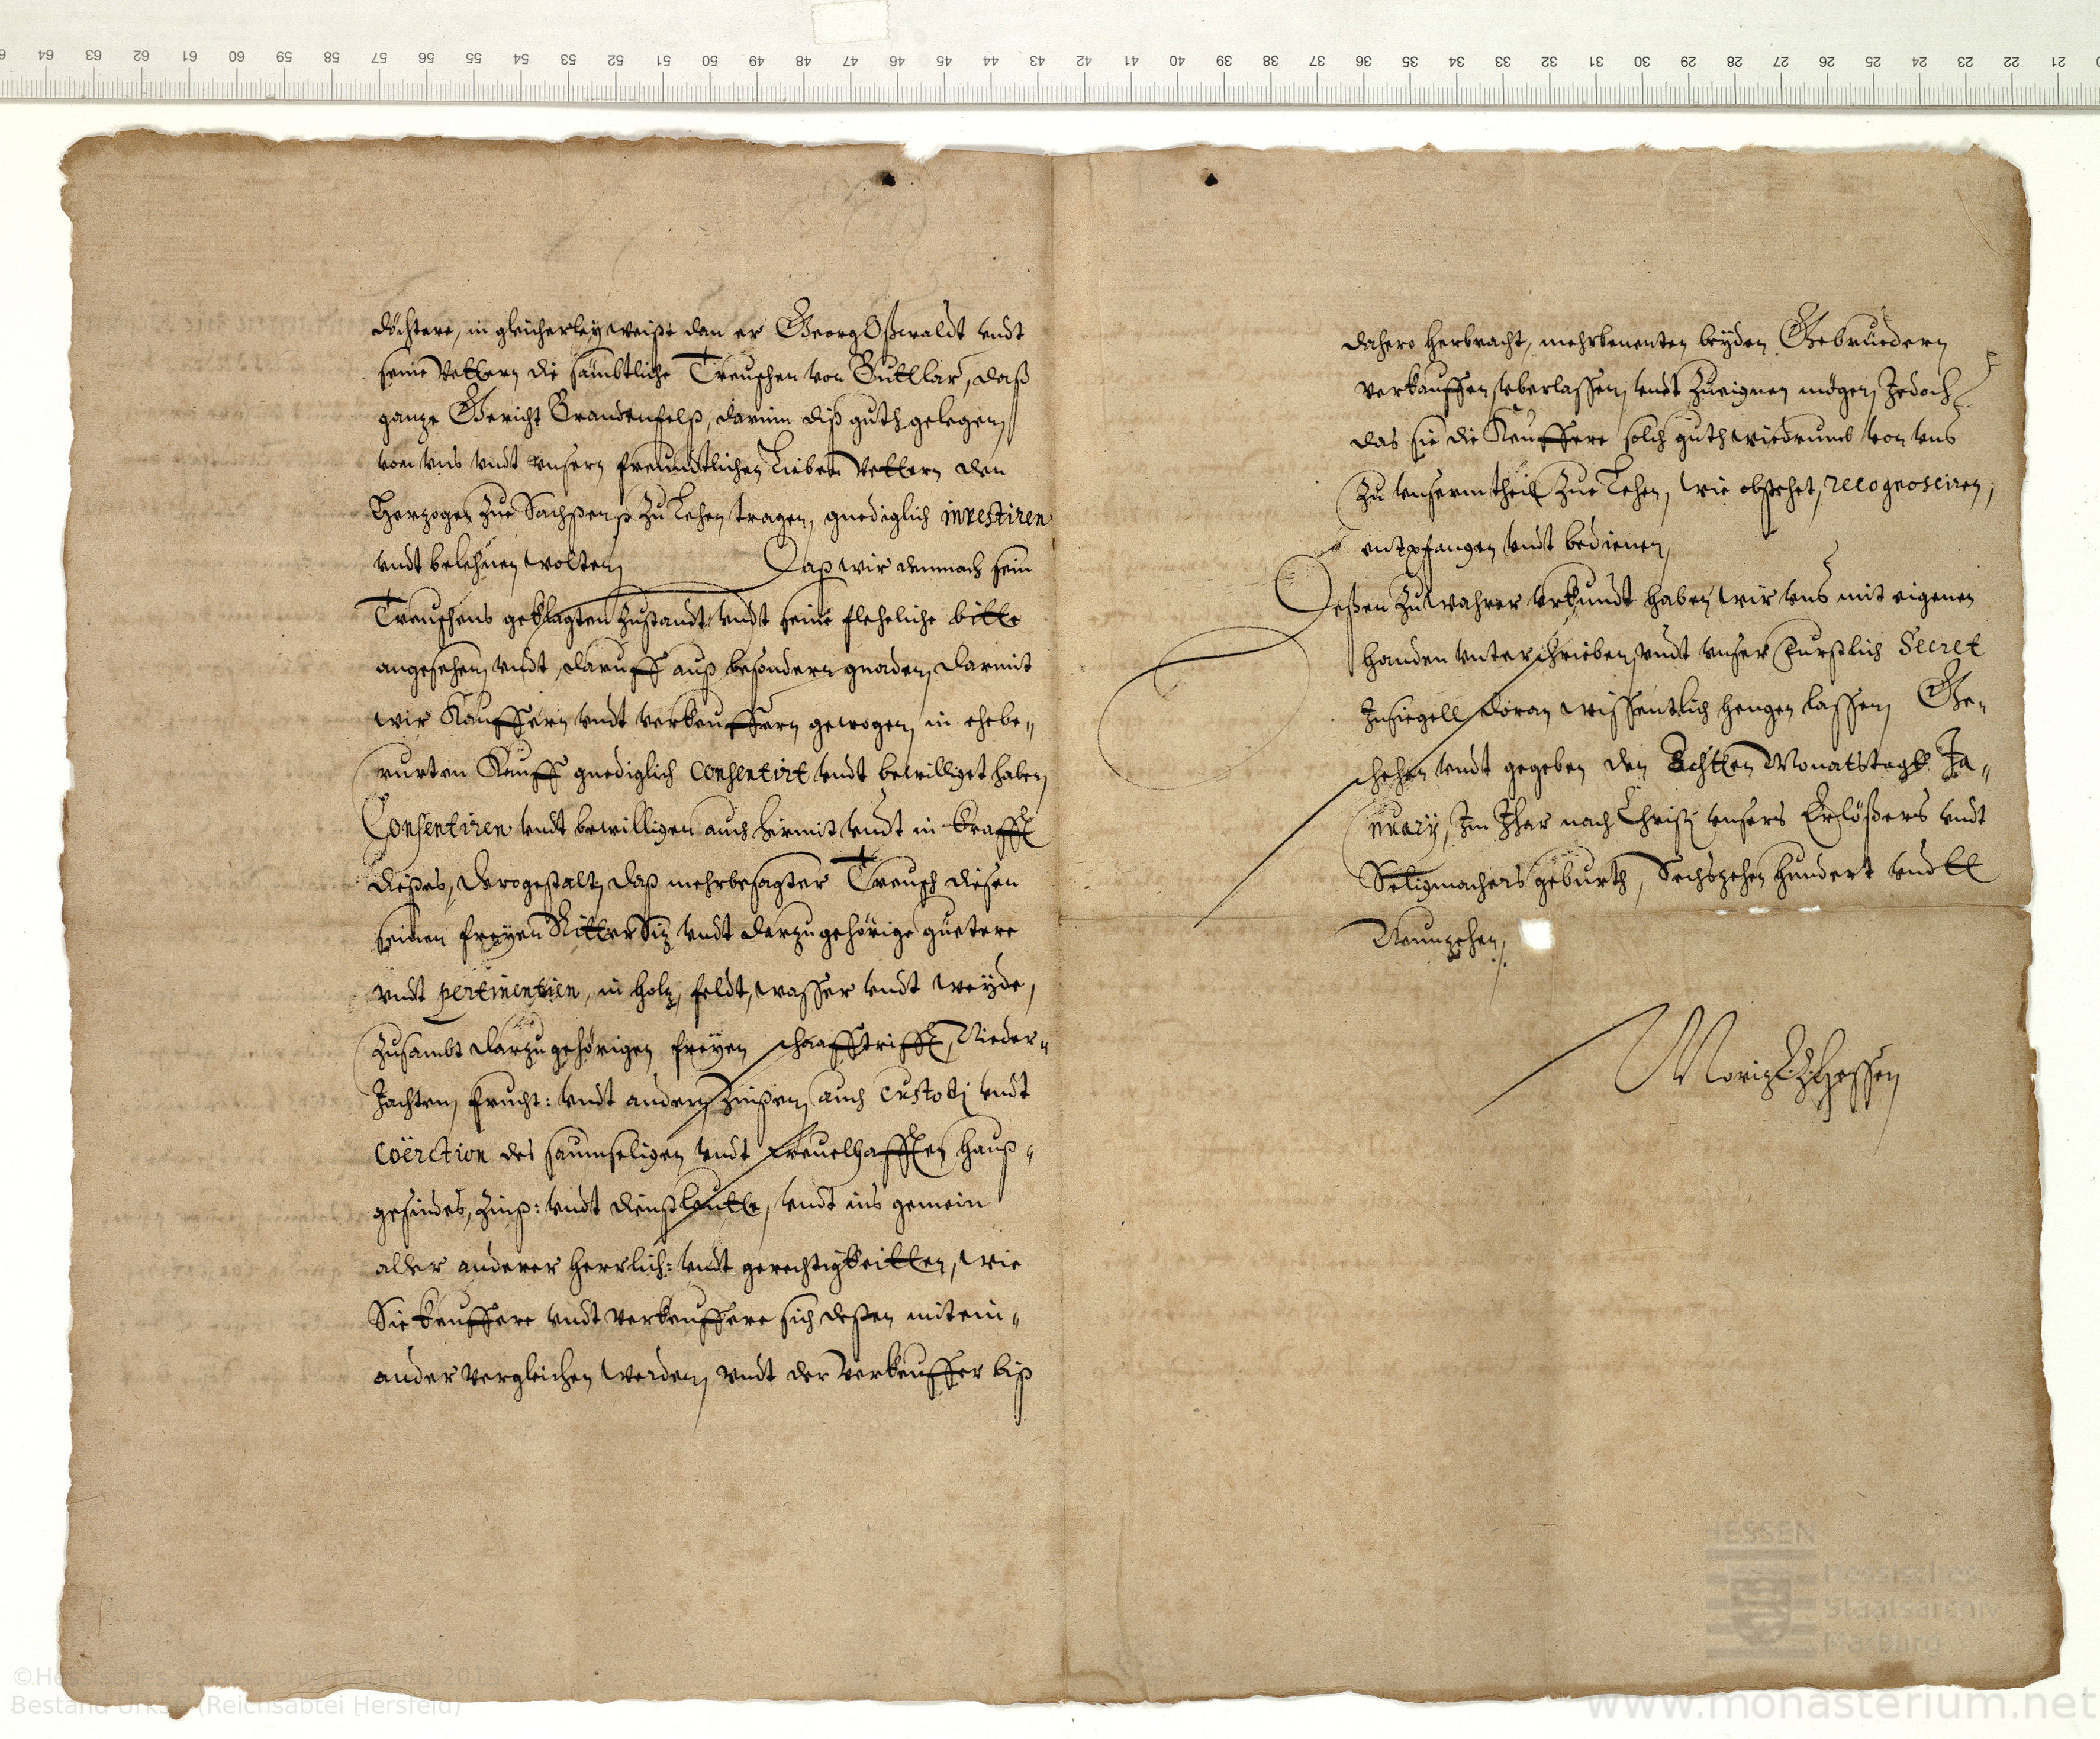 döchtere, in gleicherley weiße dan er Georg Oßwaldt vndt
seine Vettern die sämbtliche Treuschen von Buttlar, daß
ganze Gericht Brandenfelß, darinn diß guth gelegen,
von vns vndt vnsern freundtlichen Lieben Vettern den
Herzogen Zue Sachßenß Zu Lehen tragen, gnediglich investiren
vndt belehnen wolten, Daß wir demnach sein
Treuschens geklagten Zustandt vndt seine fleheliche bitte
angesehen, vndt daruff auß besondern gnaden, darmit
wir Kauffern vndt verkeuffern gewogen, in ehebe-
rurten Kauff gnediglich consentirt vndt bewilliget haben,
Consentiren vndt bewilligen auch hirmit vndt in krafft
dießes, derogestalt, daß mehrbesagter Treusch diesen
seinen freyen Rittersiz vndt darzugehörige guetere
vndt pertinentien, in holz, feldt, wasser vndt weyde,
Zusambt darzugehörigen freyen schaafftrifft, Nieder-
Jachten, frucht: vndt andern Zinßen, auch custodi vndt
coërction des saumseligen vndt freuelhafften hauß-
gesindes, Zinß: vndt dienstleutte, vndt ins gemein
aller anderer herrlich: vndt gerechtigkeitten, wie
Sie keuffere vndt verkeuffere sich deßen mitein-
ander vergleichen werden, vndt der verkeuffer biß
dahero herbracht, mehrbenenten beyden Gebruedern
verkauffen, vberlassen, vndt Zueignen mögen, Jedoch
das sie die Keuffere solch guth wiedrumb von vns
Zu vnserm theil Zue Lehen, wie obstehet, recognosciren,
entpfangen vndt bedienen,
Deßen Zu wahrer vrkundt haben wir vns mit eigenen
handen vnterschrieben, vndt vnser Furstlich Secret
Insiegell doran wissentlich hengen lassen, Ge-
schehen vndt gegeben den Achtten Monatstagk Ja-
nuarij, Im Jhar nach Christi vnsers Erlößers vndt
Seligmachers geburth, Sechszehen hundert vndtt
Neunzehen,
Moriz L Z Hessen
HESSEN
Hessisches
Staatsarchiv
Marburg
www.monasterium.net